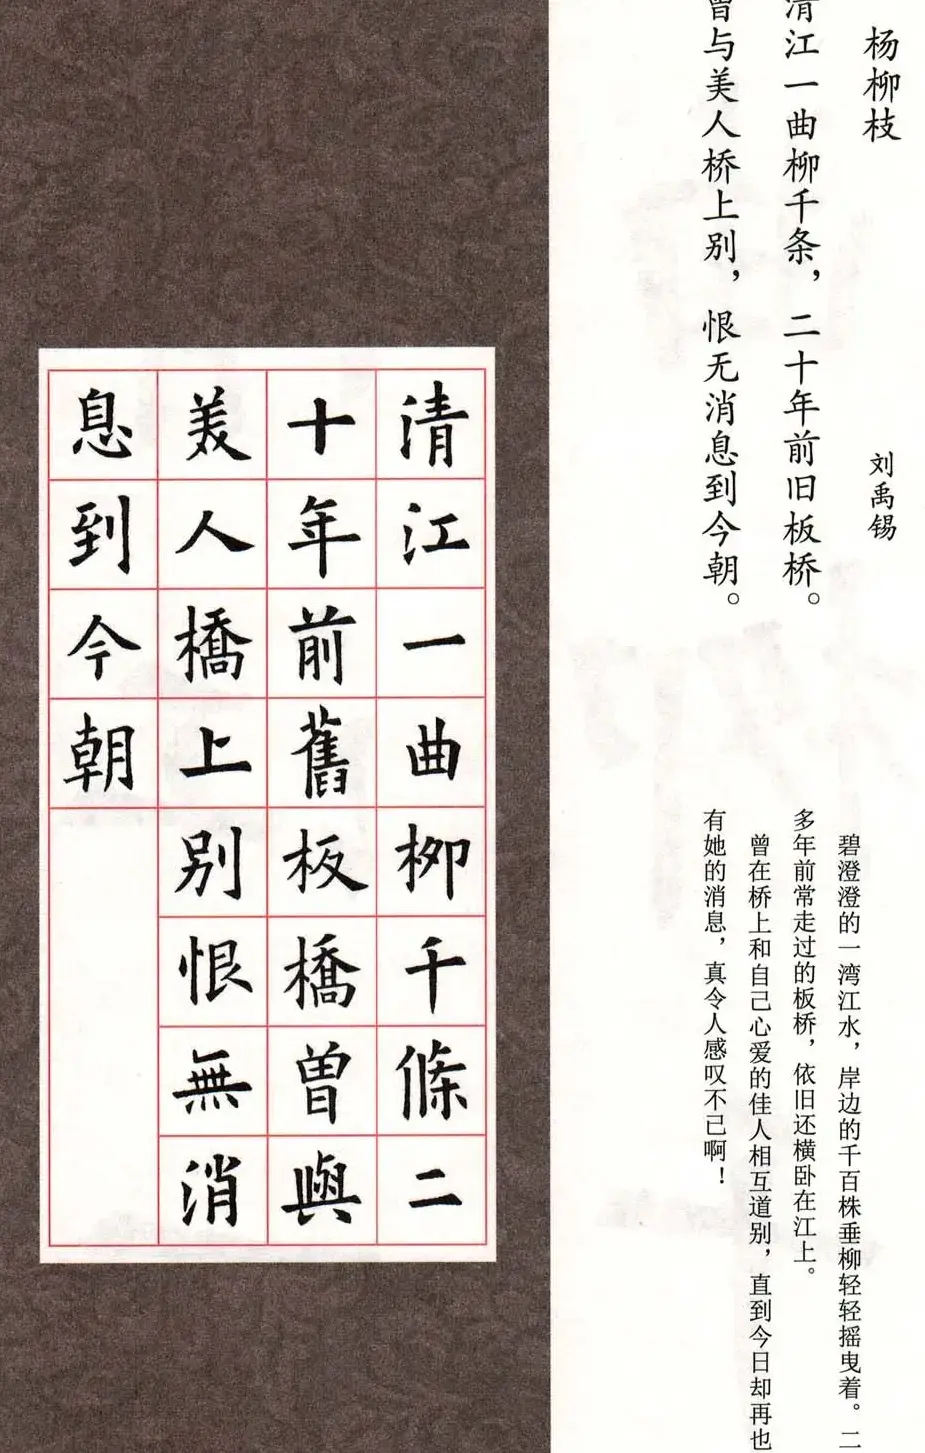 杨柳枝
刘禹锡
清江一曲柳千条，二十年前旧板桥。
曾与美人桥上别，恨无消息到今朝。
碧澄澄的一湾江水，岸边的千百株垂柳轻轻摇曳着。二
多年前常走过的板桥，依旧还横卧在江上。
曾在桥上和自己心爱的佳人相互道别，直到今日却再也
有她的消息，真令人感叹不已啊！
清江一曲柳千條二
十年前舊板橋曽與
美人橋上別恨無消
息到今朝